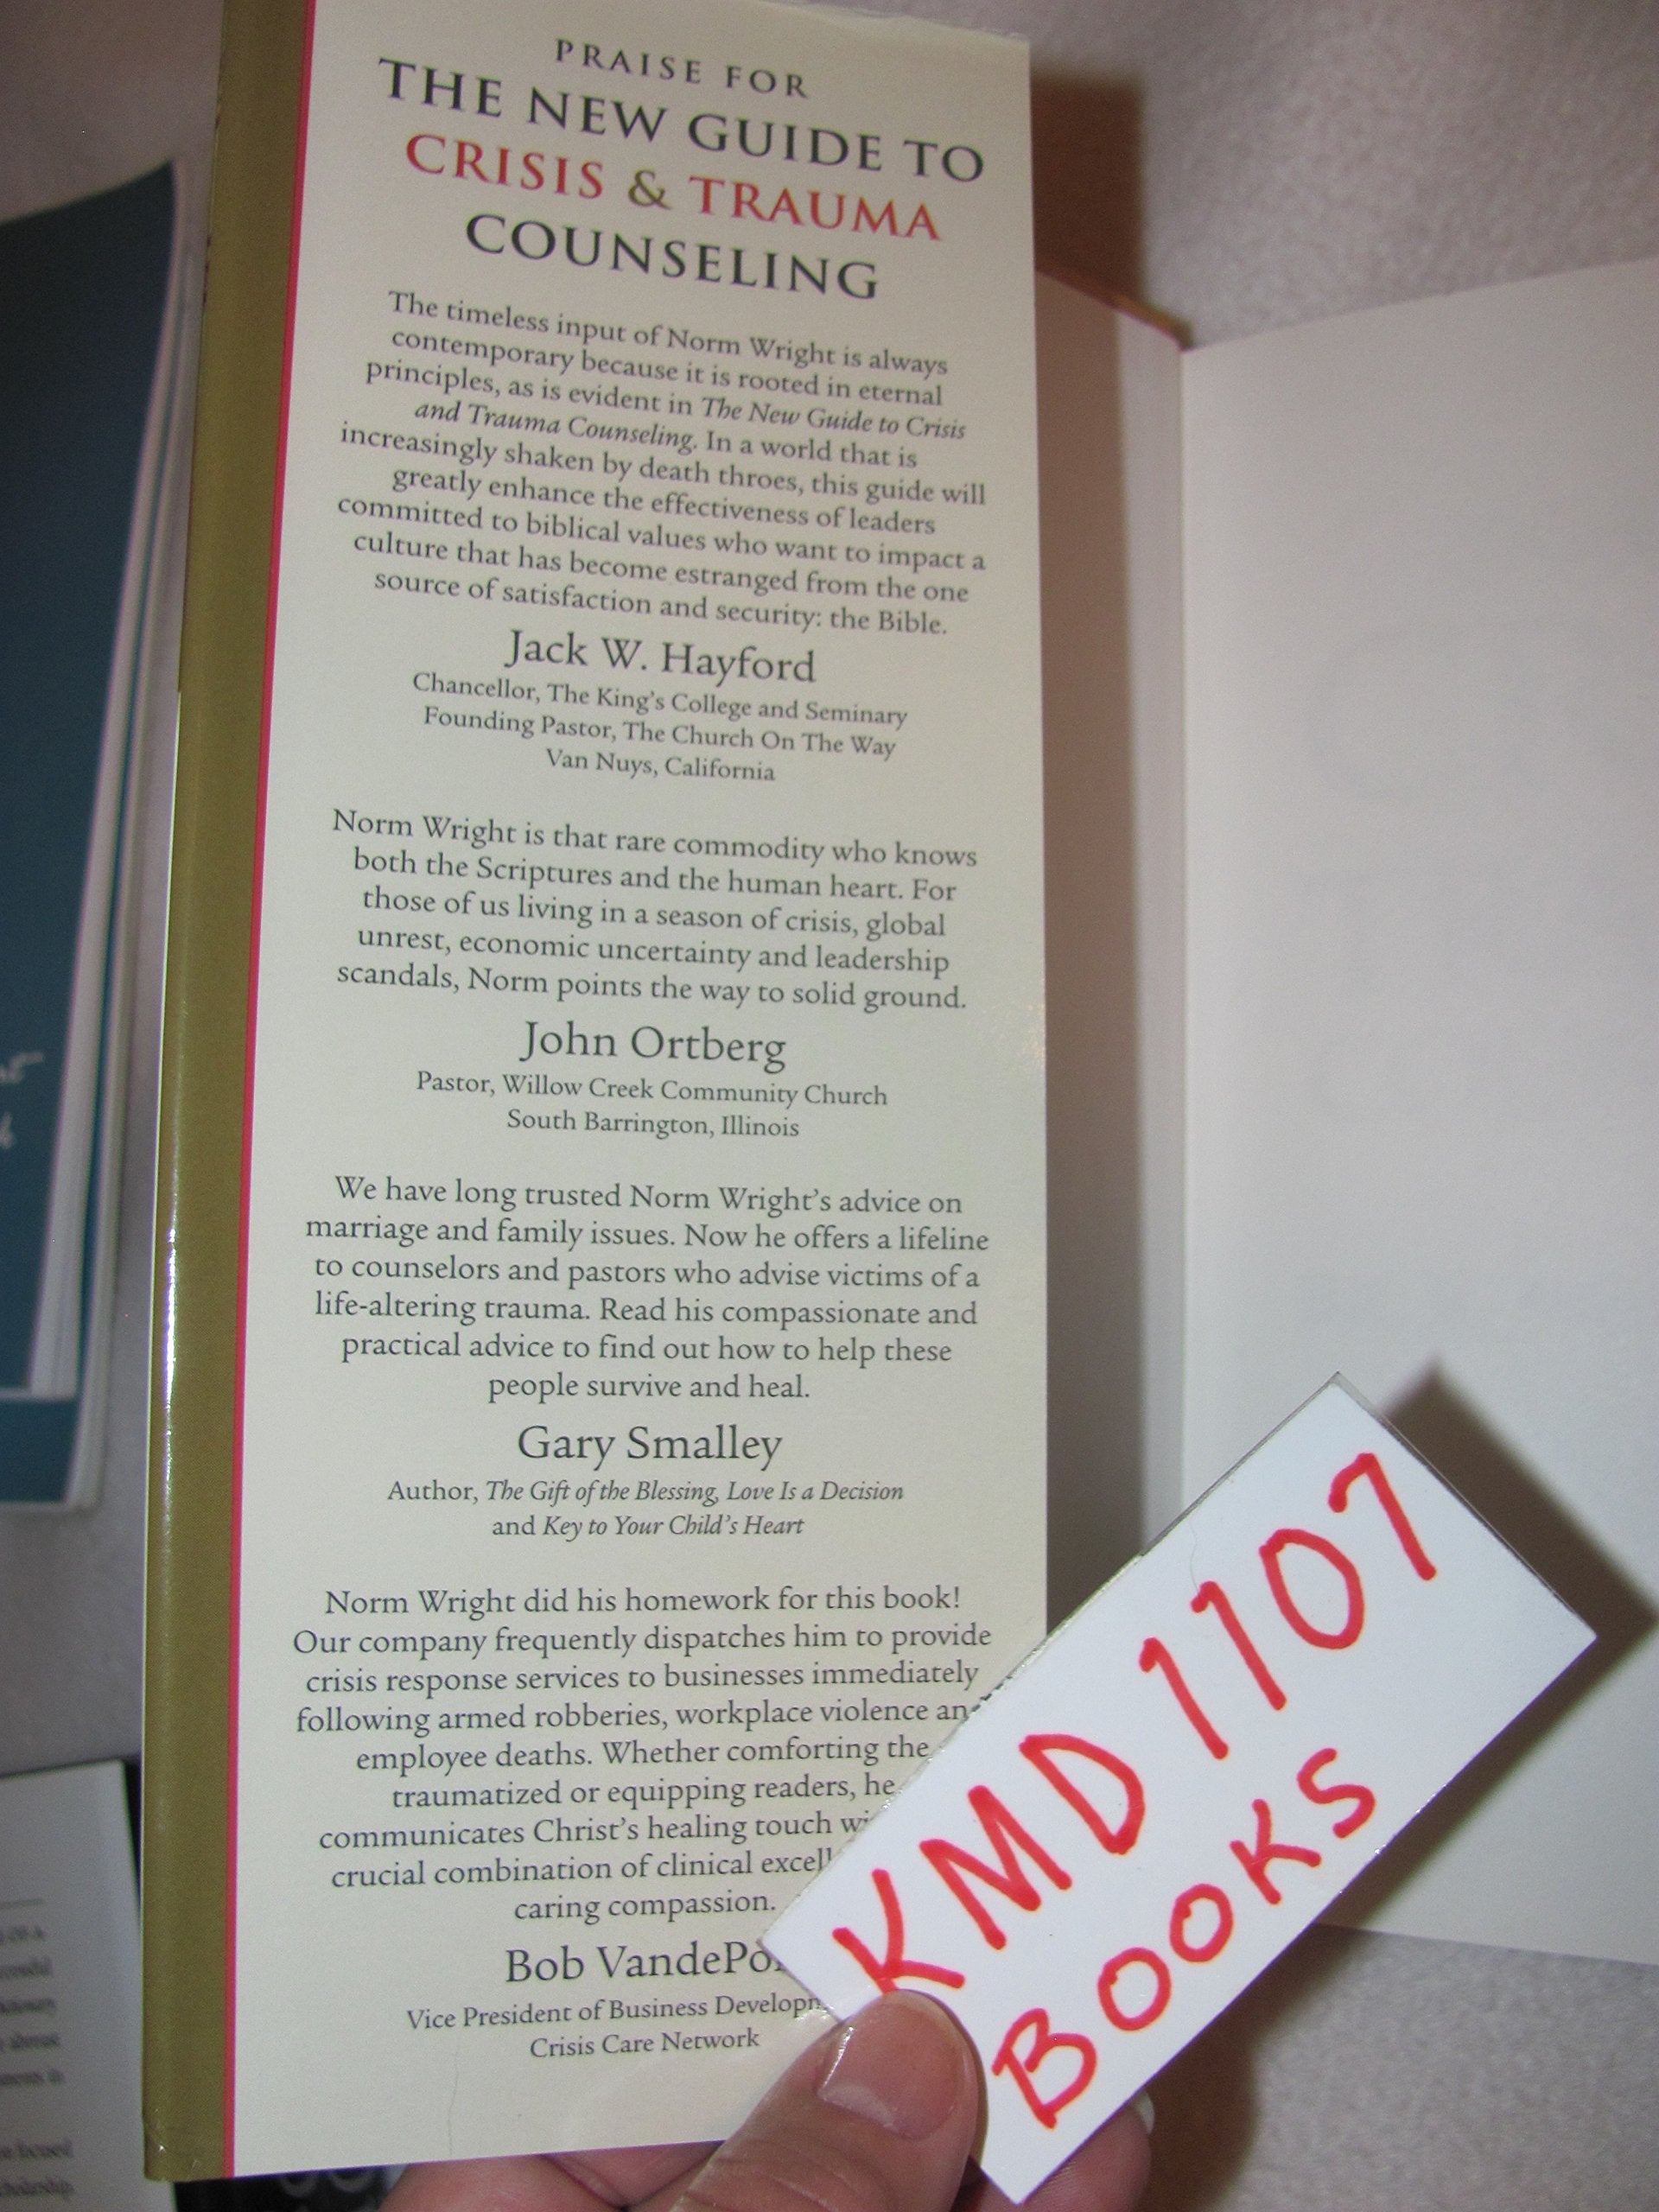 PRAISE FOR
THE NEW GUIDE TO
CRISIS & TRAUMA
COUNSELING
The timeless input of Norm Wright is always
contemporary because it is rooted in eternal
principles, as is evident in The New Guide to Crisis
and Trauma Counseling. In a world that is
increasingly shaken by death throes, this guide will
greatly enhance the effectiveness of leaders
committed to biblical values who want to impact a
culture that has become estranged from the one
source of satisfaction and security: the Bible.
Jack W. Hayford
Chancellor, The King's College and Seminary
Founding Pastor, The Church On The Way
Van Nuys, California
Norm Wright is that rare commodity who knows
both the Scriptures and the human heart. For
those of us living in a season of crisis, global
unrest, economic uncertainty and leadership
scandals, Norm points the way to solid ground.
John Ortberg
Pastor, Willow Creek Community Church
South Barrington, Illinois
We have long trusted Norm Wright's advice on
marriage and family issues. Now he offers a lifeline
to counselors and pastors who advise victims of a
life-altering trauma. Read his compassionate and
practical advice to find out how to help these
people survive and heal.
Gary Smalley
Author, The Gift of the Blessing, Love Is a Decision
and Key to Your Child's Heart
Norm Wright did his homework for this book!
Our company frequently dispatches him to provide
crisis response services to businesses immediately
following armed robberies, workplace violence and
employee deaths. Whether comforting the
traumatized or equipping readers, he
communicates Christ's healing touch
crucial combination of clinical
caring compassion.
Bob
Vice President of Business
Crisis Care Network
KMD 1107
BOOKS